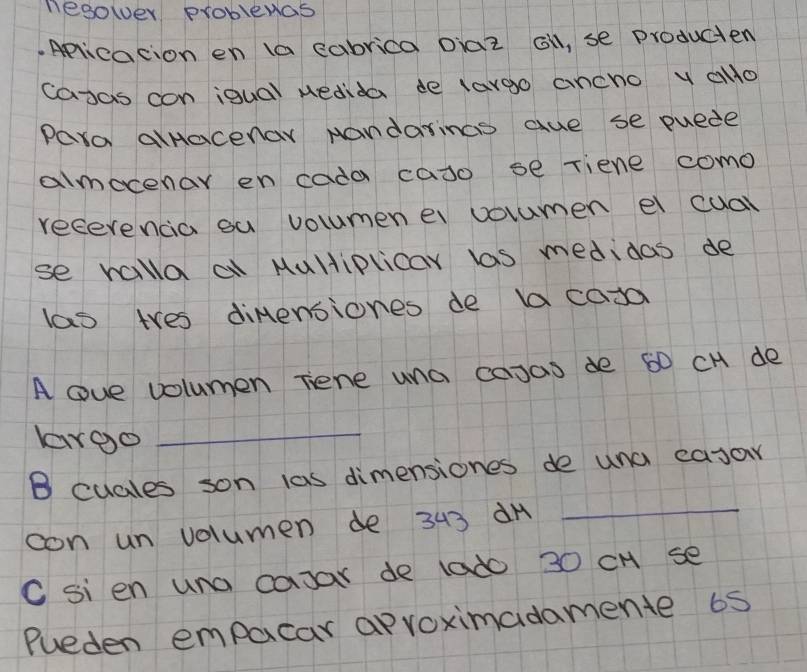 Resolver problemas
.Aplicacion en la fabrica Diaz Gil, se producten
cajas con igual medida de largo ancho y alto
Para almacenar mandarinas que se puede
almacenar en cada cajo se tiene como
referencia su volumen el volumen el cual
se halla al multiplicar las medidas de
las tres dimensiones de la caja
A que volumen tiene una cajas de 50 cm de
largo
B cuales son las dimensiones de una cajar
con un volumen de 343 dm
C si en una cajar de lado 30 cm se
Pueden empacar aproximadamente 65